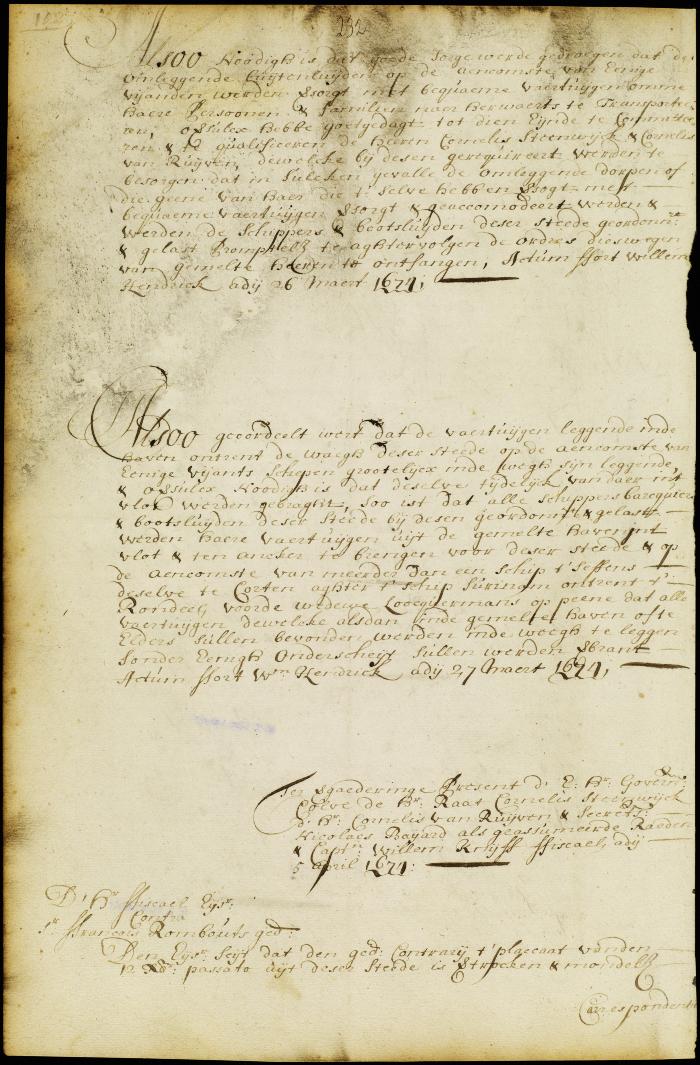 232
Alsoo Noodigh is dat goede sorge werde gedraegen dat de
omleggende buytenluyden op de aencomste van Eenige
vijanden werden Besorgt met bequaeme vaertuygen omme
haere Persoonen & familien naer herwaerts te Transporte
ren, Soo hebbe goetgedagt tot dien Eynde te Committe
ren & te qualificeren de heeren Cornelis Steenwijck & Cornelis
van Ruyven, dewelcke bij desen gerequireert werden te
besorgen dat in sulcken gevalle de omleggende dorpen of
die geene van haer die 't selve hebben versogt met
bequaeme vaertuygen versorgt & geaccomodeert werden &
werden de schippers & bootsluyden deser steede geordonnt
& gelast Promptelk te aghtervolgen de ordres dieswegen
van gemelte heeren te ontfangen, Actum ffort willem
Hendrick adij 26 Maert 1674,
Alsoo geoordeelt wert dat de vaertuygen leggende inde
haven ontrent de waegh deser steede op de aencomste van
Eenige vijants schepen grootelycx inde wegh sijn leggende,
& Noodigh is dat deselve tijdelijck van daer int
vlot werden gebraght, Soo ist dat alle schippers barquiers
& bootsluyden deser steede bij desen geordonnt & gelast
werden haere vaertuygen uijt de gemelte haven int
vlot & ten ancker te brengen voor deser steede & op
de aencomste van meerder dan een schip t'seffens
deselve te Corten aghter t' schip Surinam ontrent t'
Rondeel voorde weduwe Loocquermans op peene dat alle
vaertuygen dewelcke alsdan inde gemelte haven ofte
Elders sullen bevonden werden inde weegh te leggen
sonder Eenigh Onderscheyt sullen werden verbrant
Actum ffort Wm Hendrick adij 27 Maert 1674,
Ter vergaederinge Present d' E: Hr: Governr
Colve de Hr: Raat Cornelis Steenwijck
d' Hr: Cornelis van Ruijven & Secrets:
Nicolaes Bayard als geassumeerde Raaden
& Captn: Willem Knijff ffiscael, adij
5 April 1674:
D' Hr ffiscael Eysr:
Contra
Sr. ffrancois Rombouts ged:
Den Eysr. seyt dat den ged: Contrarij t' placcaat vanden
12 Xbr: passato uijt deser steede is vertrocken & mondelk
Correspondentie